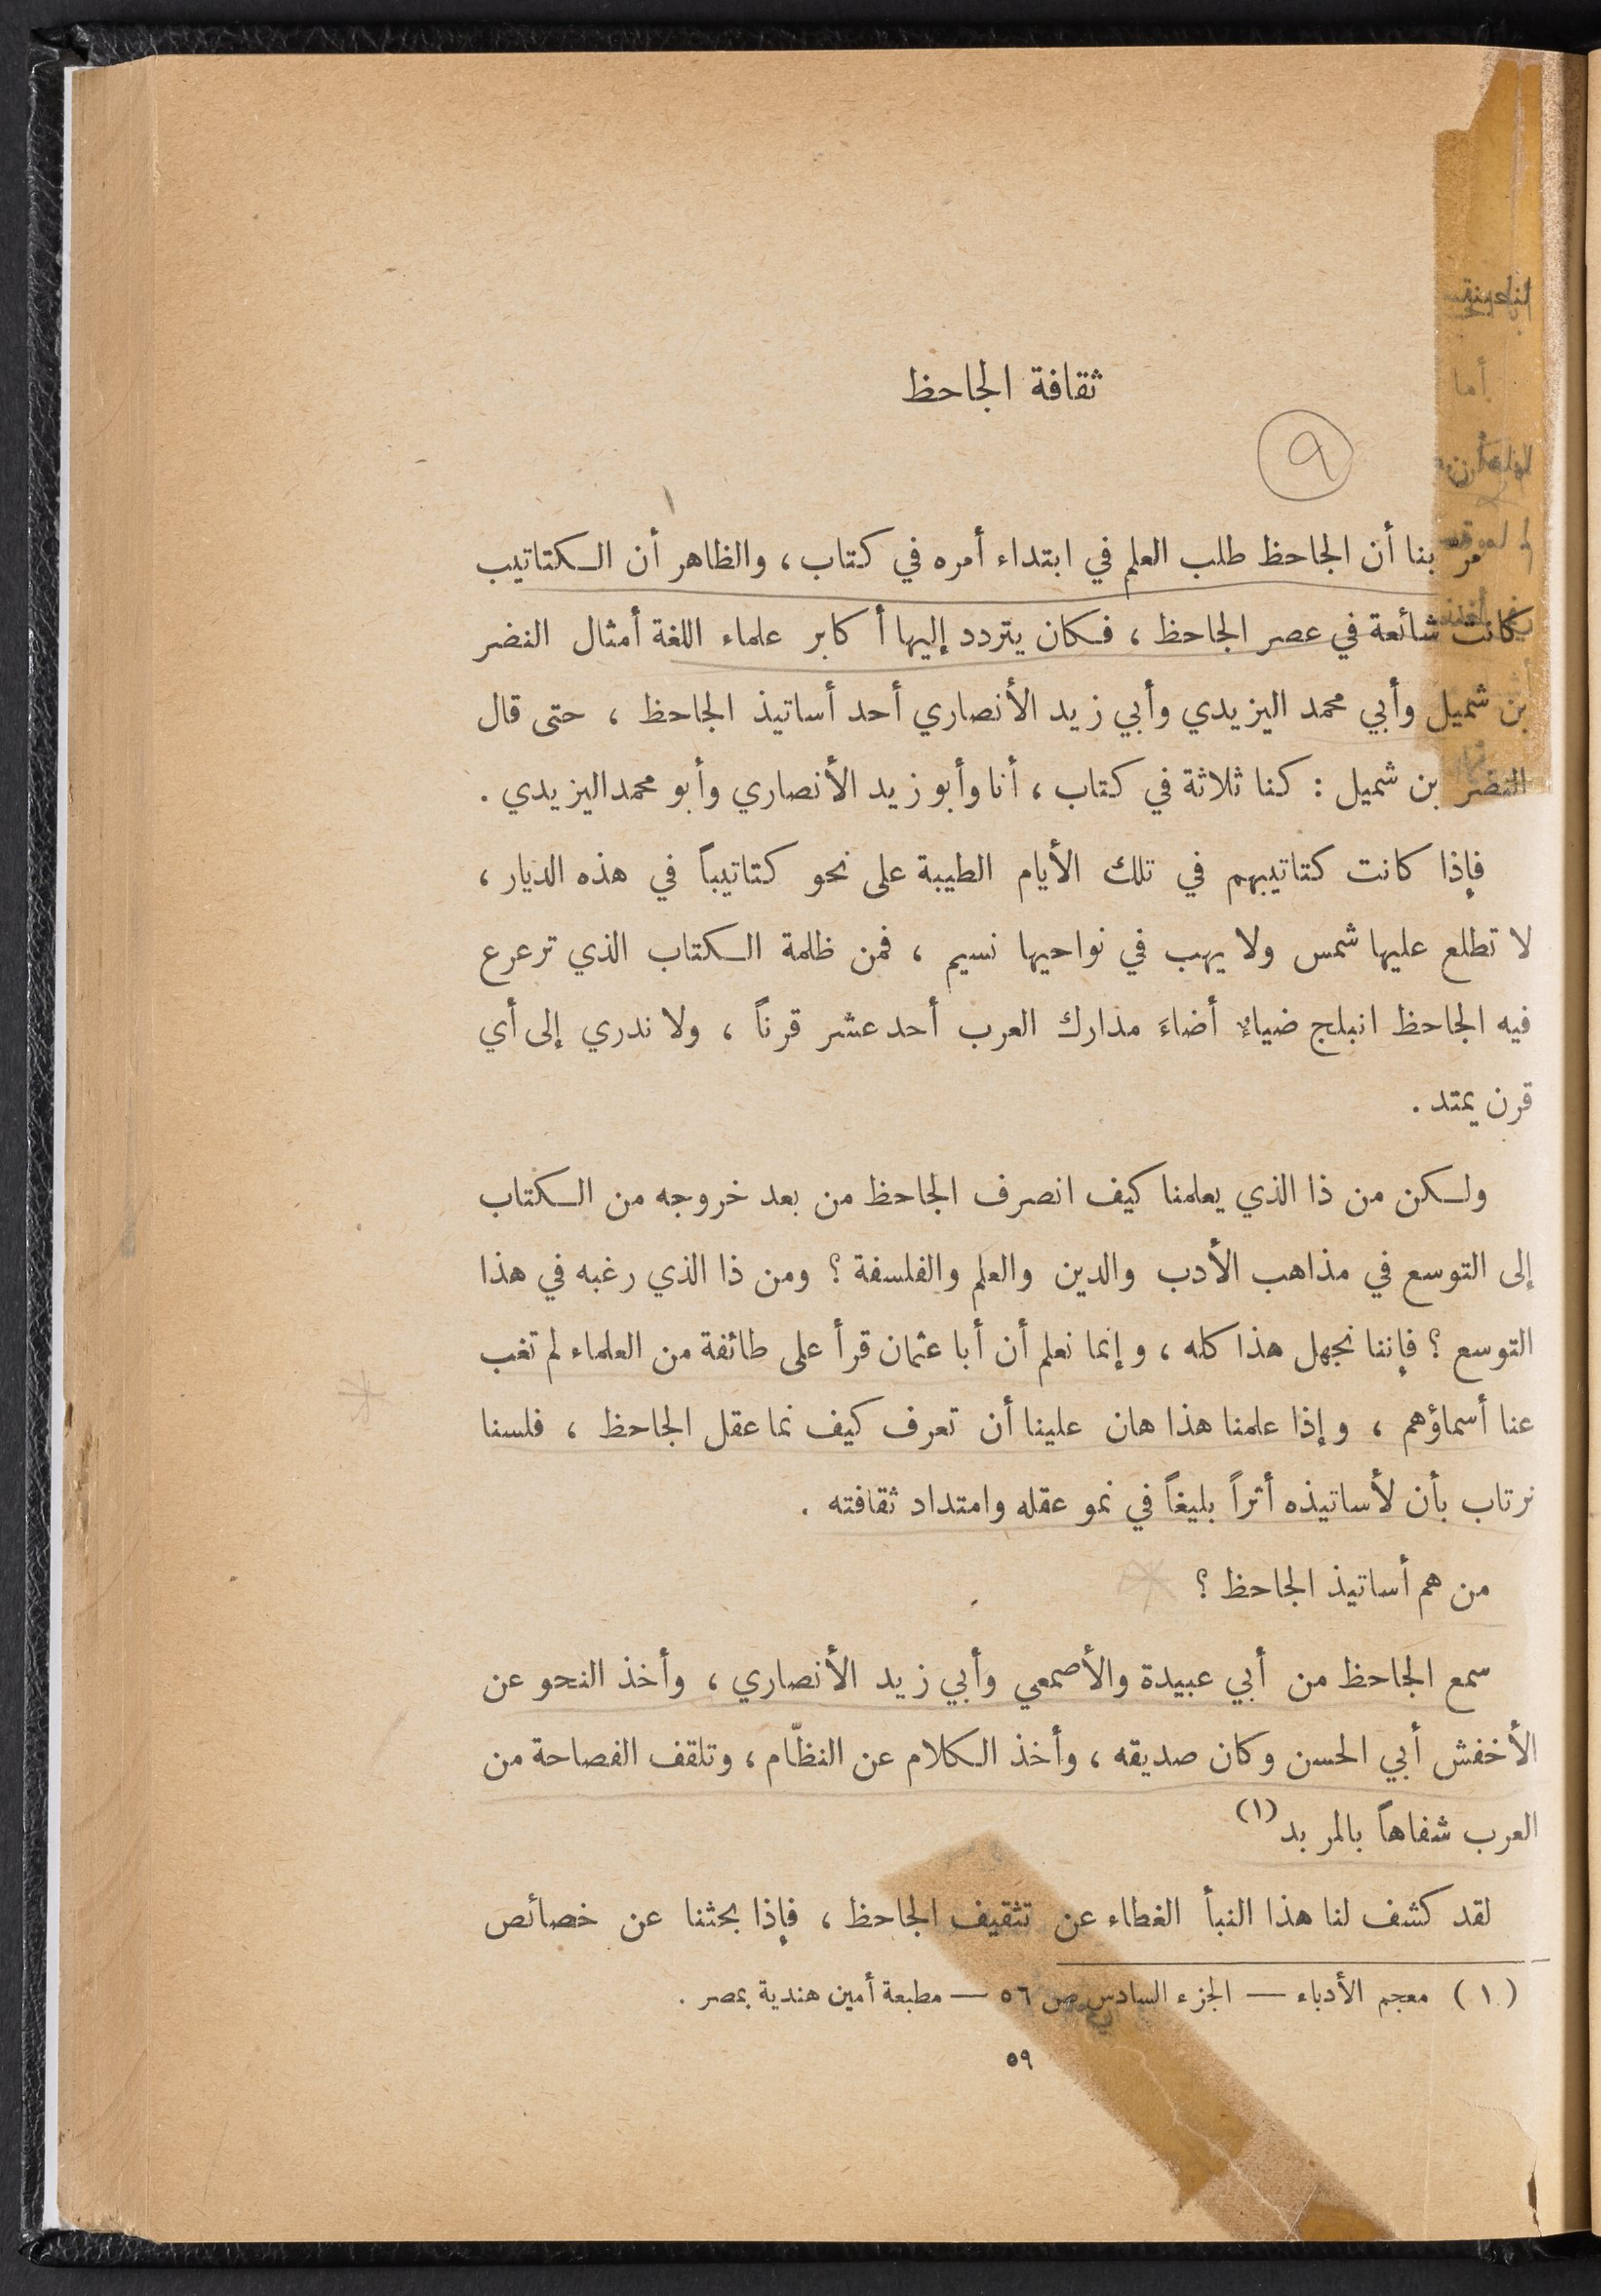 ثقافة الجاحظ
٩
مر بنا أن الجاحظ طلب العلم في ابتداء أمره في كتاب ، والظاهر أن الكتاتيب
كانت شائعة في عصر الجاحظ ، فكان يتردد إليها أكابر علماء اللغة أمثال النضر
بن شميل وأبي محمد اليزيدي وأبي زيد الأنصاري أحد أساتيذ الجاحظ ، حتى قال
النضر بن شميل : كنا ثلاثة في كتاب ، أنا وأبو زيد الأنصاري وأبو محمد اليزيدي .
فإذا كانت كتاتيبهم في تلك الأيام الطيبة على نحو كتاتيباً في هذه الديار ،
لا تطلع عليها شمس ولا يهب في نواحيها نسيم ، فمن ظلمة الكتاب الذي ترعرع
فيه الجاحظ انبلج ضياءٌ أضاءَ مدارك العرب أحد عشر قرناً ، ولا ندري إلى أي
قرن يمتد .
ولكن من ذا الذي يعلمنا كيف انصرف الجاحظ من بعد خروجه من الكتاب
إلى التوسع في مذاهب الأدب والدين والعلم والفلسفة ؟ ومن ذا الذي رغبه في هذا
التوسع ؟ فإننا نجهل هذا كله ، وإنما نعلم أن أبا عثمان قرأ على طائفة من العلماء لم تغب
عنا أسماؤهم ، وإذا علمنا هذا هان علينا أن تعرف كيف نما عقل الجاحظ ، فلسنا
نرتاب بأن لأساتيذه أثراً بليغاً في نمو عقله وامتداد ثقافته .
من هم أساتيذ الجاحظ ؟
سمع الجاحظ من أبي عبيدة والأصمعي وأبي زيد الأنصاري ، وأخذ النحو عن
الأخفش أبي الحسن وكان صديقه ، وأخذ الكلام عن النظّام ، وتلقف الفصاحة من
العرب شفاهاً بالمربد (١)
لقد كشف لنا هذا النبأ الغطاء عن تثقيف الجاحظ ، فإذا بحثنا عن خصائص
(١) معجم الأدباء — الجزء السادس ص ٥٦ — مطبعة أمين هندية بمصر .
٥٩